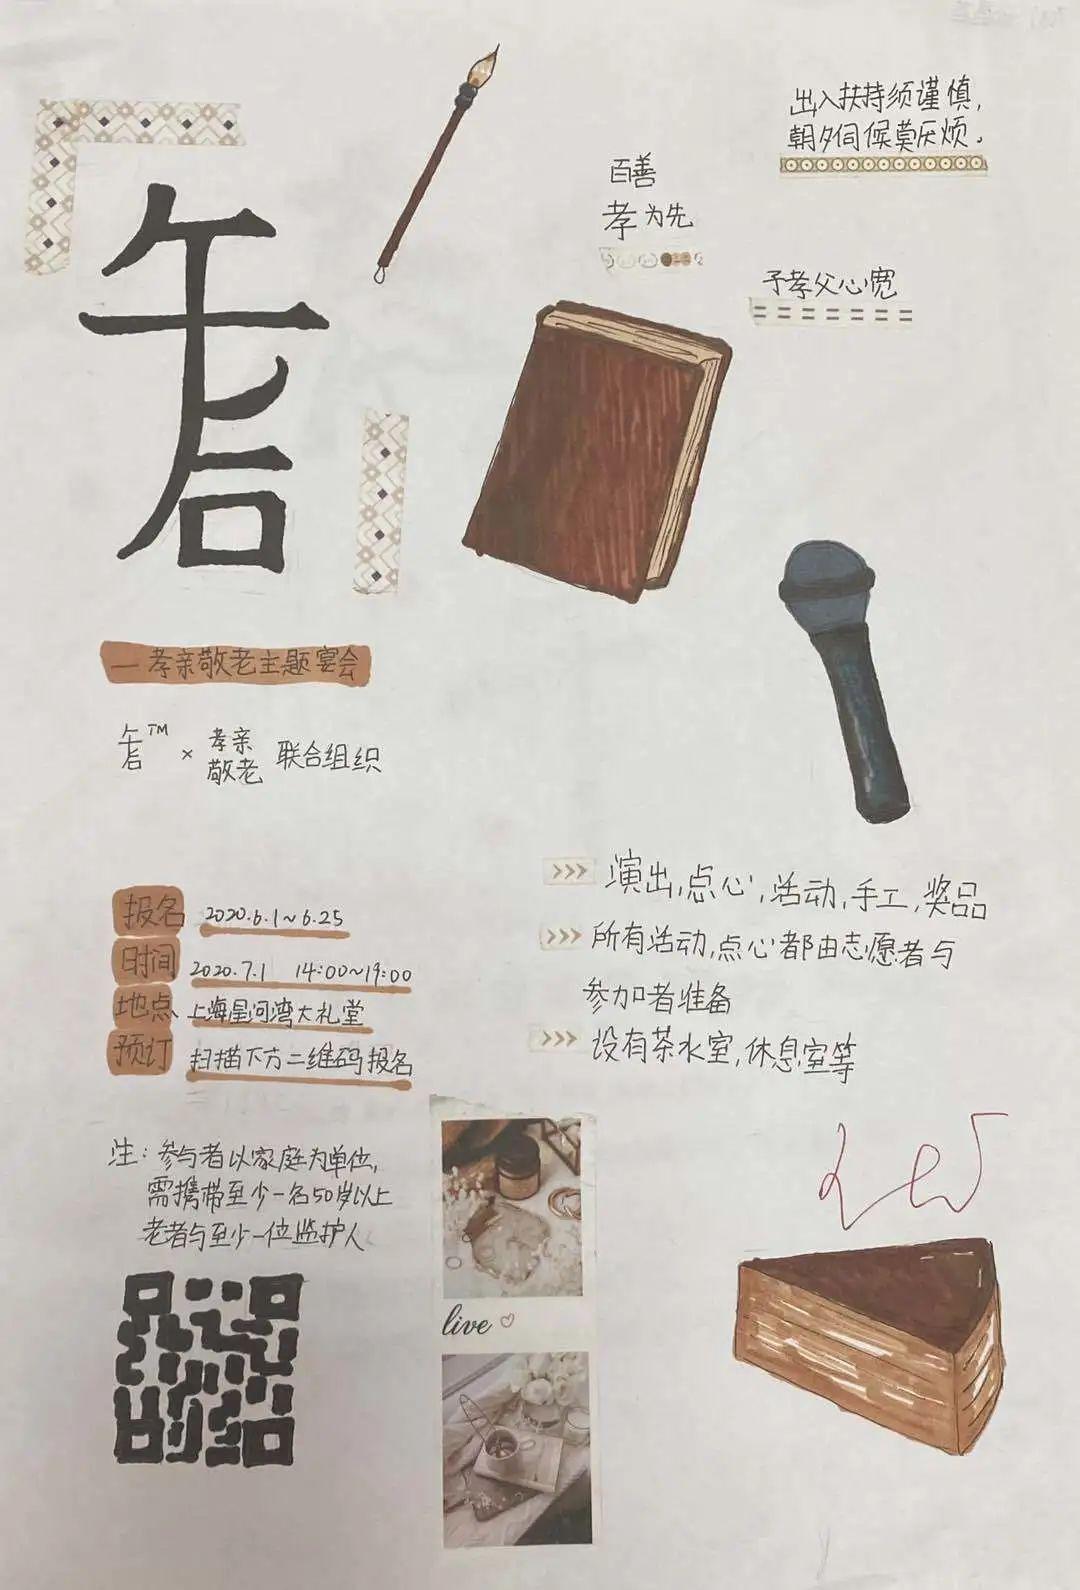 出入扶持须谨慎，
朝夕伺候莫厌烦。
百善
孝为先
子孝父心宽
—孝亲敬老主题宴会
TM × 孝亲
敬老 联合组织
报名 2020.6.1~6.25
时间 2020.7.1 14:00~19:00
地点 上海星河湾大礼堂
预订 扫描下方二维码报名
>>> 演出,点心,活动,手工,奖品
>>> 所有活动,点心都由志愿者与
参加者准备
>>> 设有茶水室,休息室等
注：参与者以家庭为单位,
需携带至少一名50岁以上
老者与至少一位监护人
live